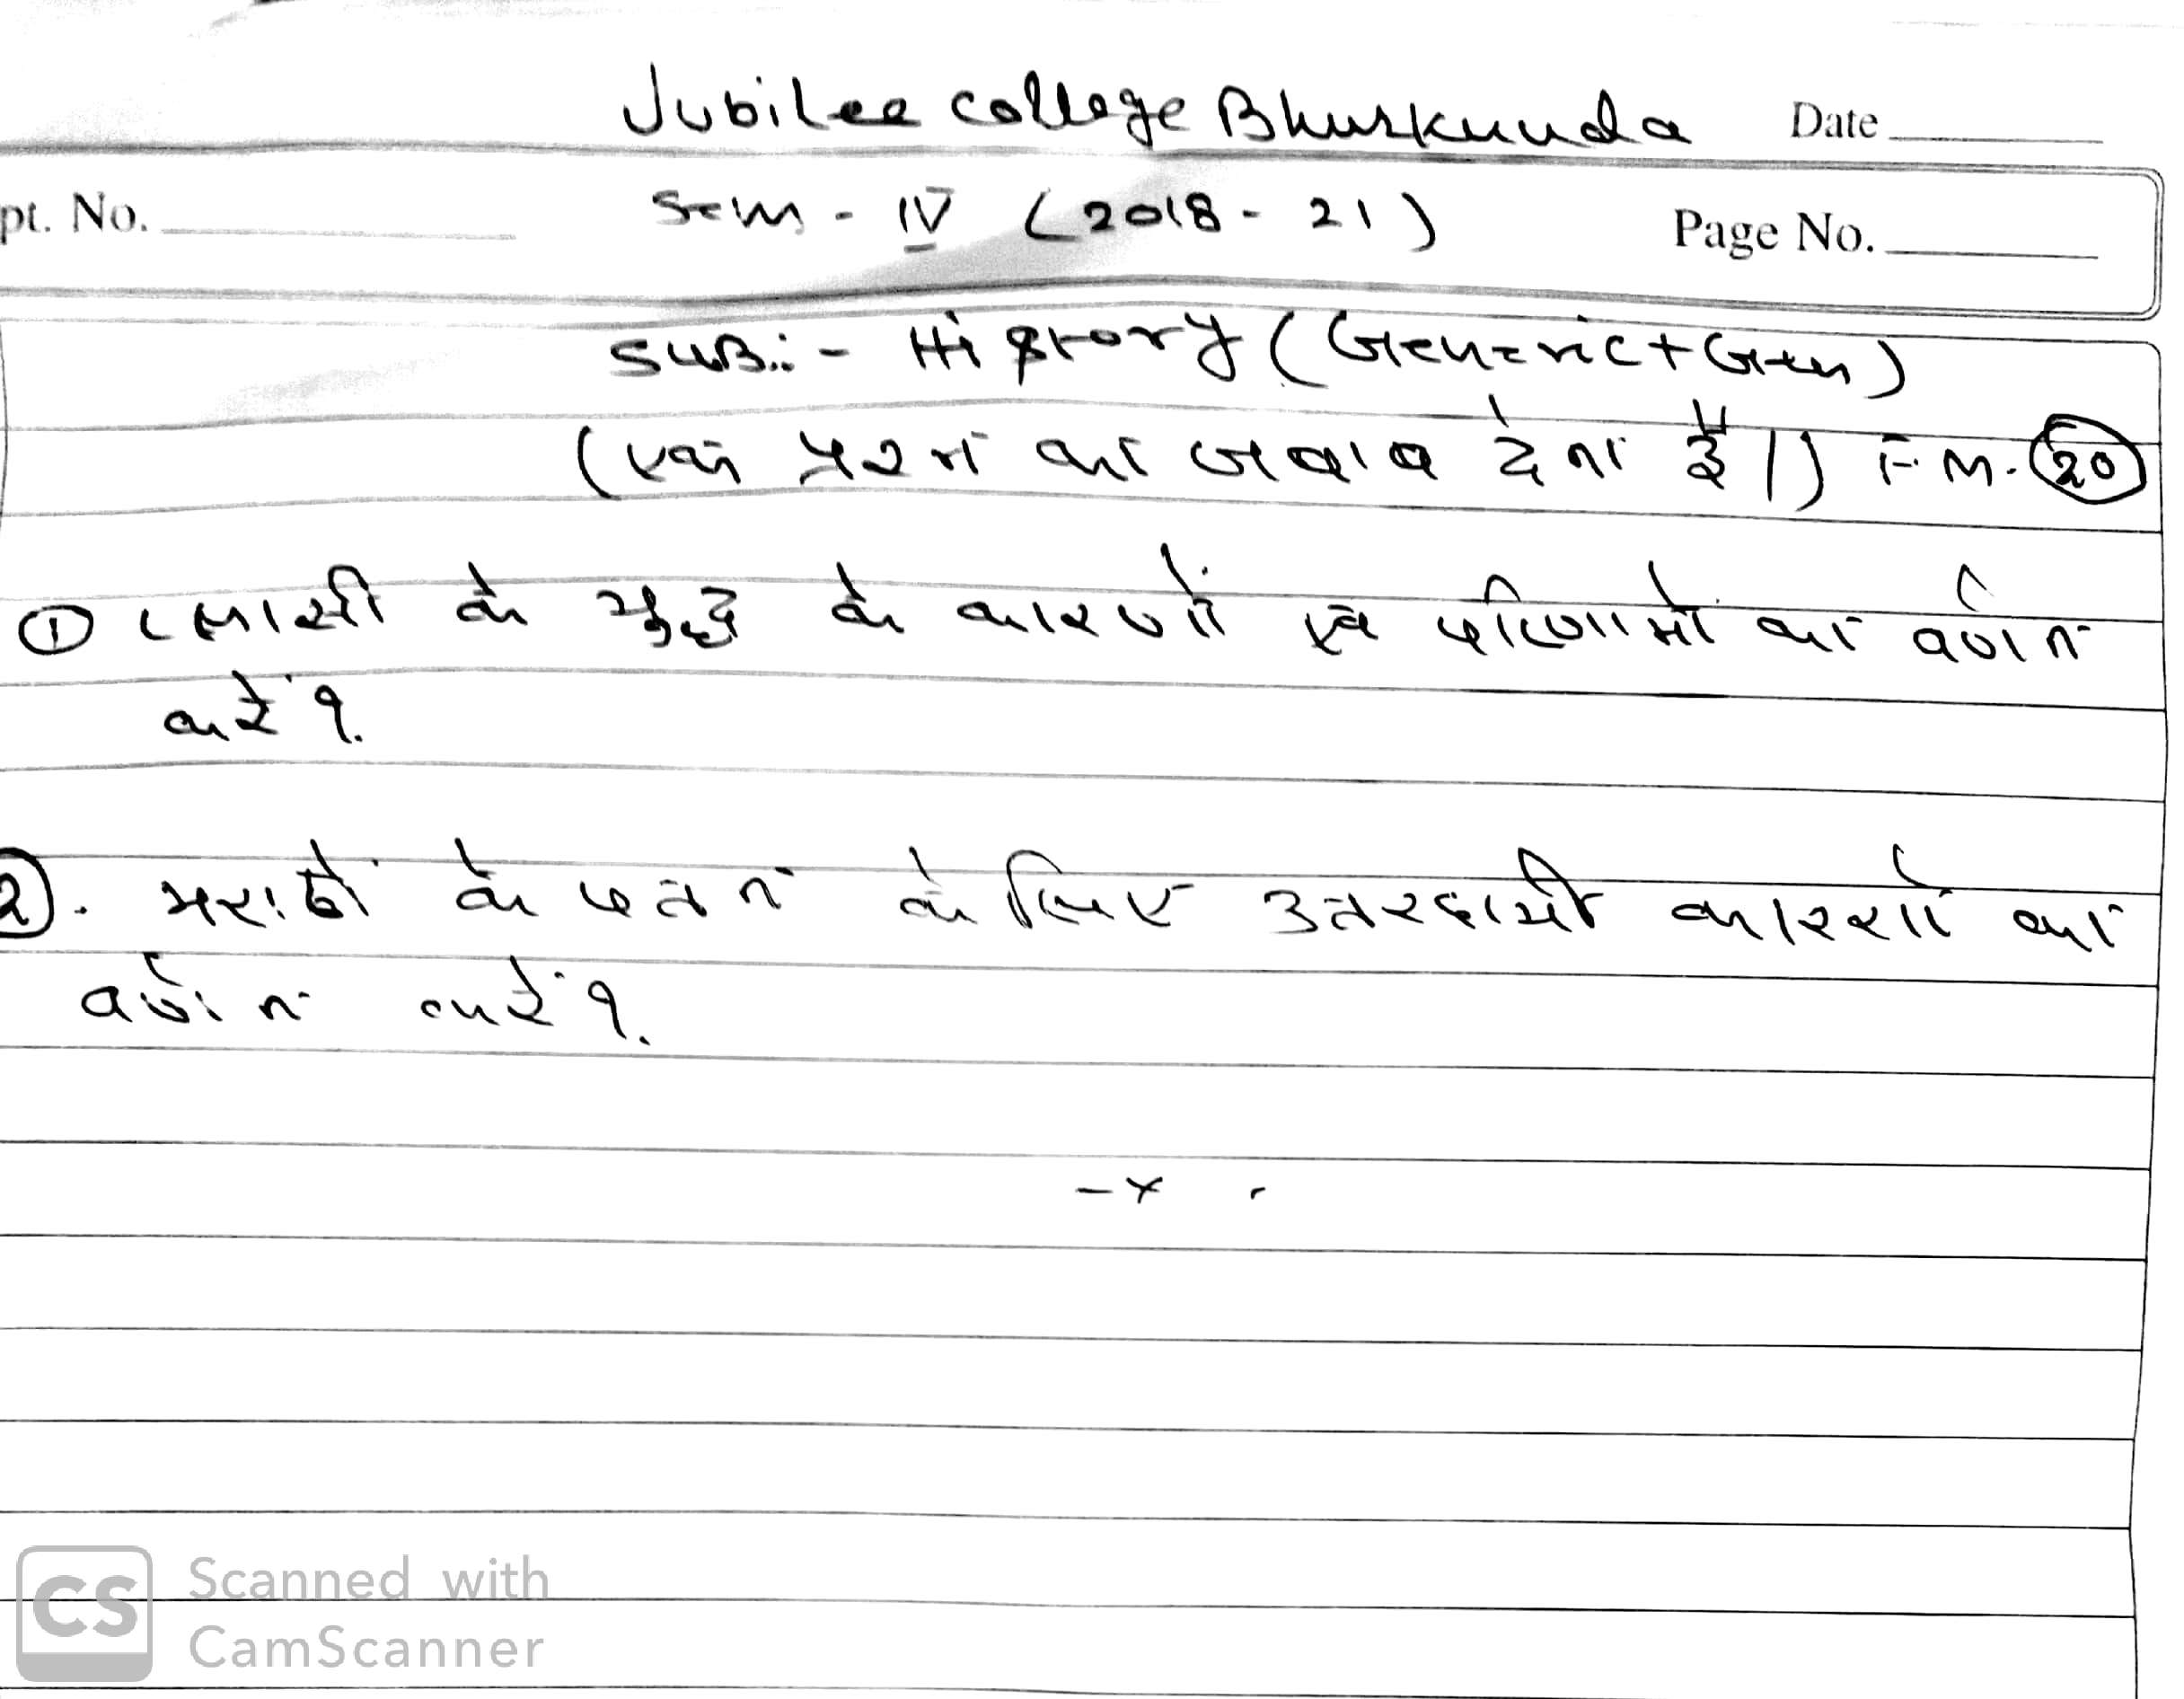 Jubilee college Bhurkunda Date
pt. No. Sem - IV (2018 - 21) Page No.
SUB:- History (Generic + Gen)
(एक प्रश्न का जवाब देना है।) F.M. 20
① प्लासी के युद्ध के कारणों एवं परिणामों का वर्णन
करें?
②. मराठों के पतन के लिए उतरदायी कारणों का
वर्णन करें?
- x -
CS Scanned with
CamScanner